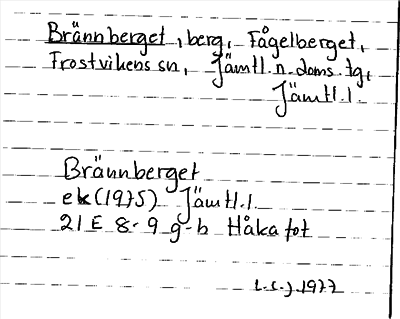 Brännberget, berg, Fågelberget,
Frostvikens sn, Jämtl. n. doms. tg,
Jämtl. l.
Brännberget
ek (1975) Jämtl. l.
21 E 8-9 g-h Håkafot
1977